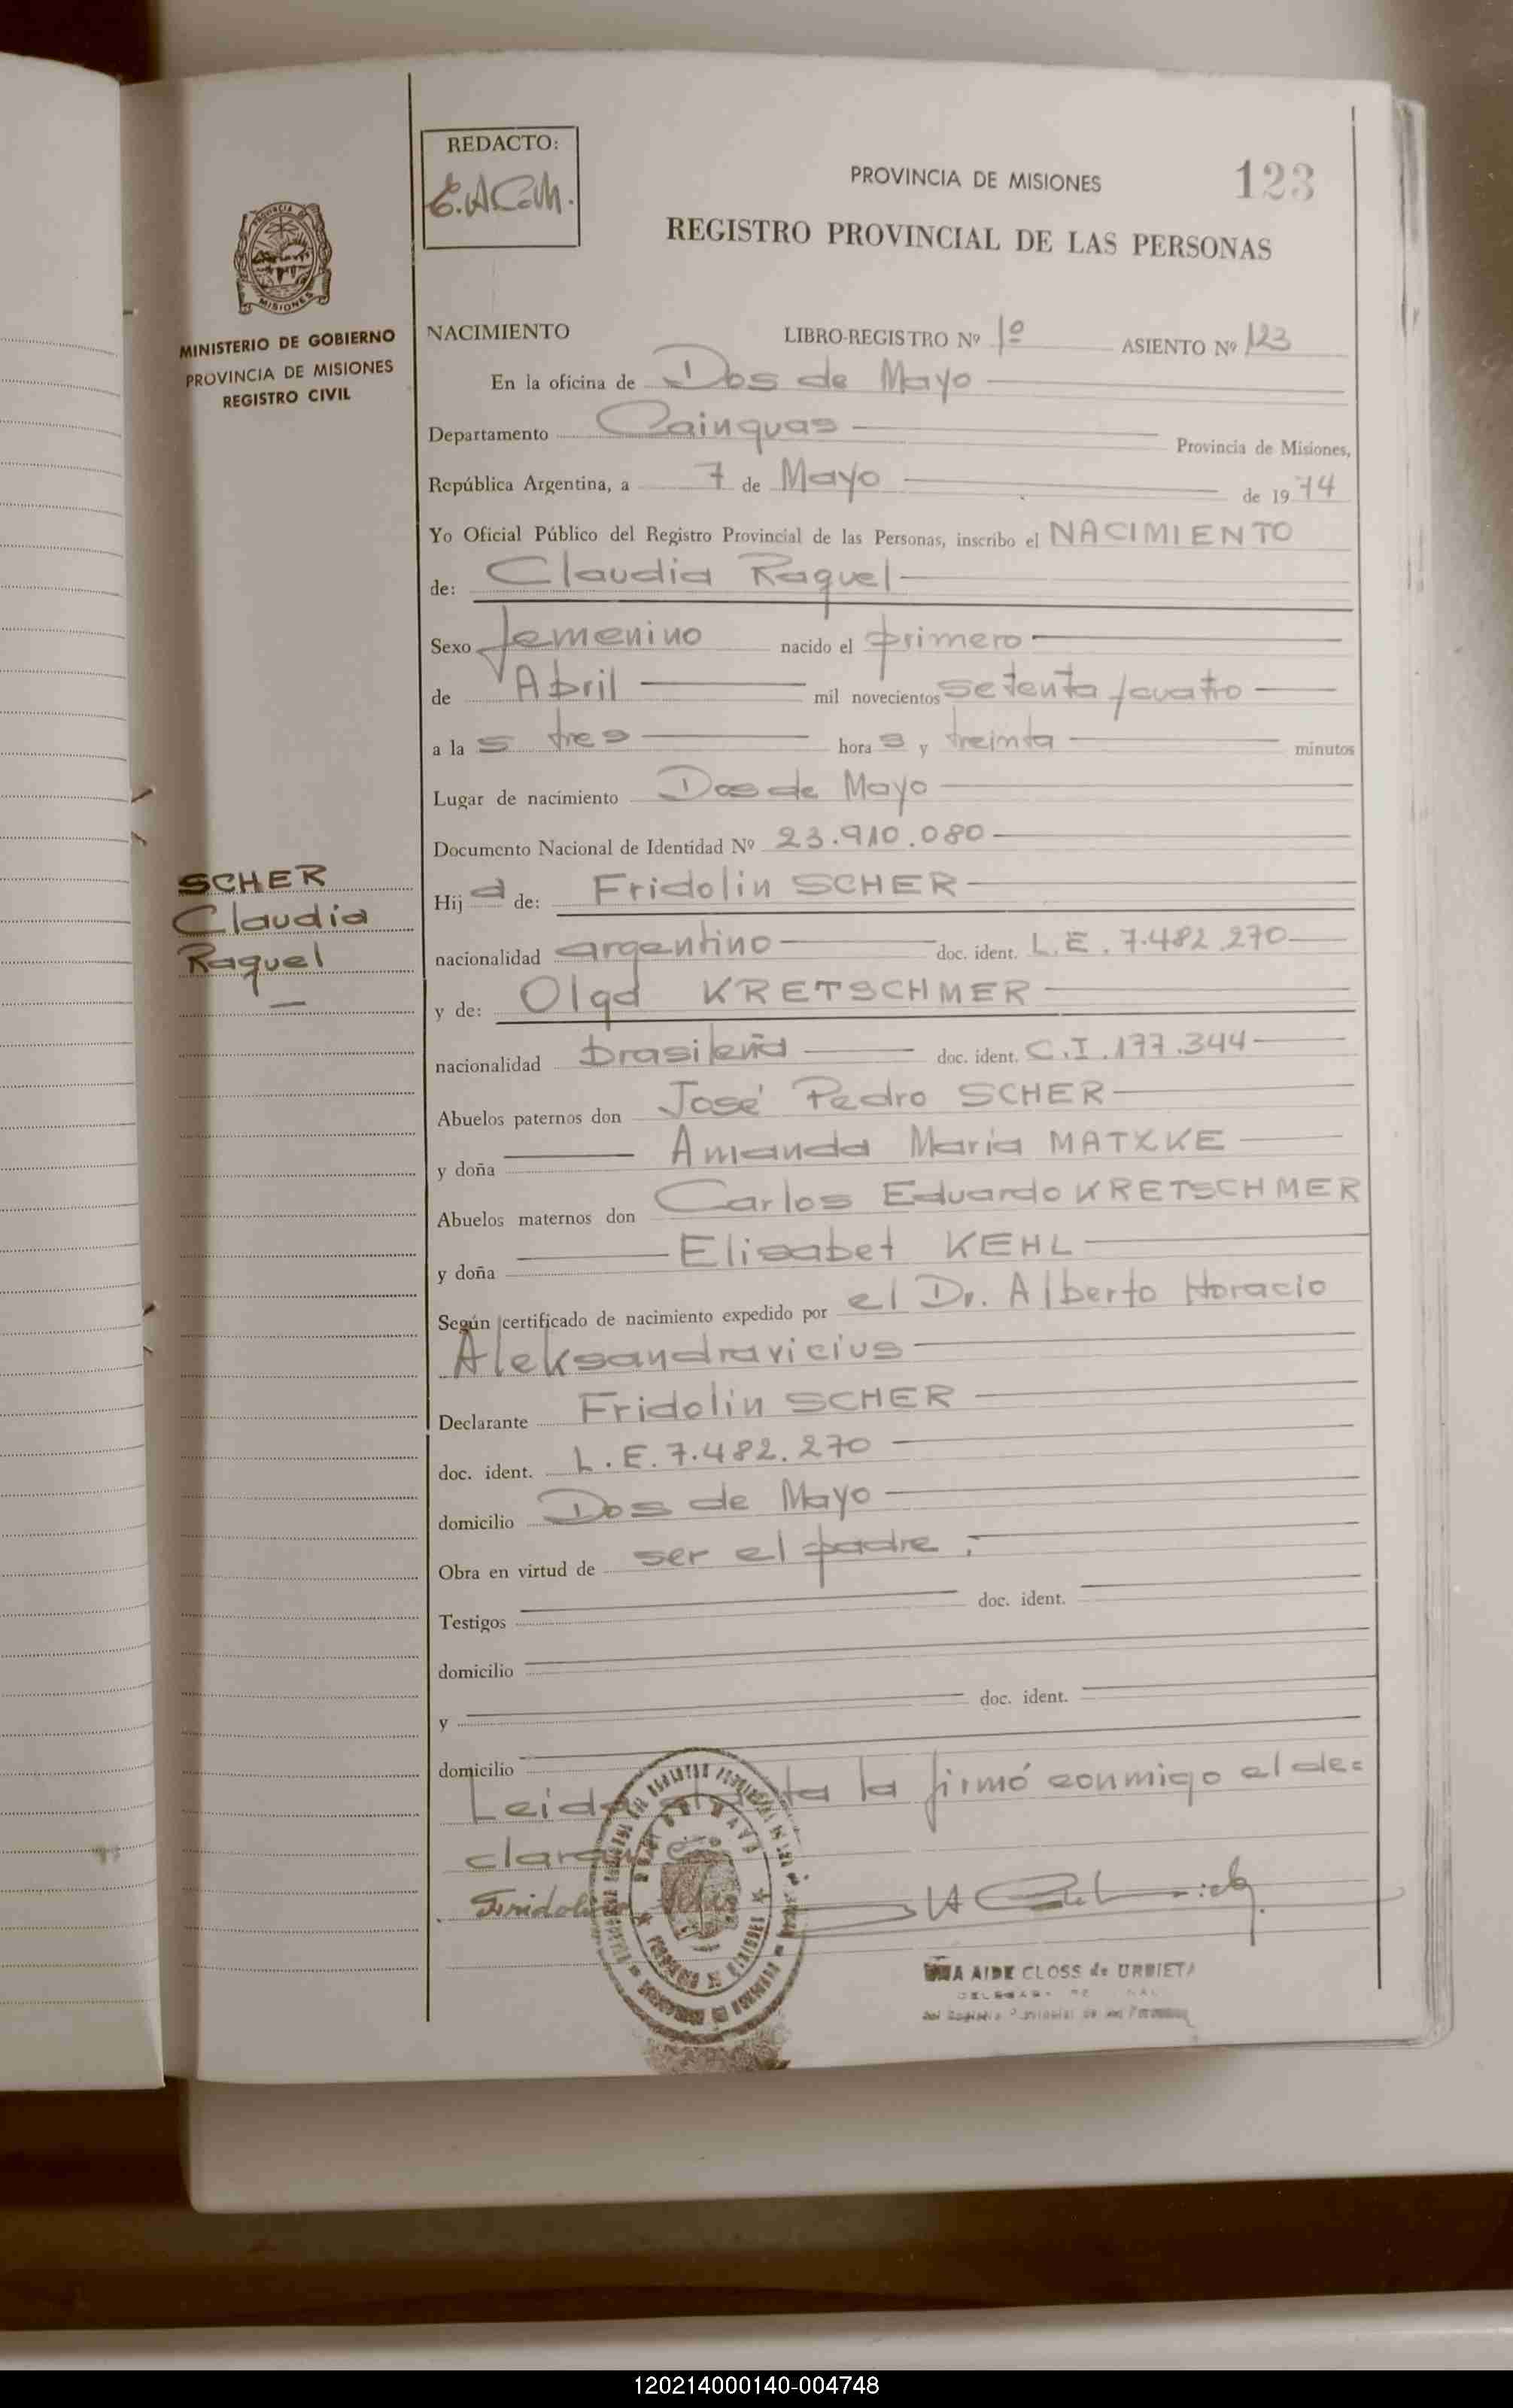 REDACTO:
E.ACdM.
PROVINCIA DE MISIONES
123
REGISTRO PROVINCIAL DE LAS PERSONAS
MINISTERIO DE GOBIERNO
PROVINCIA DE MISIONES
REGISTRO CIVIL
NACIMIENTO LIBRO-REGISTRO Nº 1º ASIENTO Nº 123
En la oficina de Dos de Mayo
Departamento Cainguas Provincia de Misiones,
República Argentina, a 7 de Mayo de 1974
Yo Oficial Público del Registro Provincial de las Personas, inscribo el NACIMIENTO
de: Claudia Raquel
Sexo femenino nacido el primero
de Abril mil novecientos setenta y cuatro
a las tres horas y treinta minutos
Lugar de nacimiento Dos de Mayo
Documento Nacional de Identidad Nº 23.910.080
SCHER
Claudia
Raquel
Hija de: Fridolin SCHER
nacionalidad argentino doc. ident. L.E. 7.482.270
y de: Olga KRETSCHMER
nacionalidad brasileña doc. ident. C.I. 177.344
Abuelos paternos don José Pedro SCHER
y doña Amanda Maria MATZKE
Abuelos maternos don Carlos Eduardo KRETSCHMER
y doña Elisabet KEHL
Según certificado de nacimiento expedido por el Dr. Alberto Horacio
Aleksandravicius
Declarante Fridolin SCHER
doc. ident. L.E. 7.482.270
domicilio Dos de Mayo
Obra en virtud de ser el padre.
Testigos doc. ident.
domicilio
y doc. ident.
domicilio
Leida la firmó conmigo el de=
Fridolin
AIDE CLOSS de URBIETA
120214000140-004748